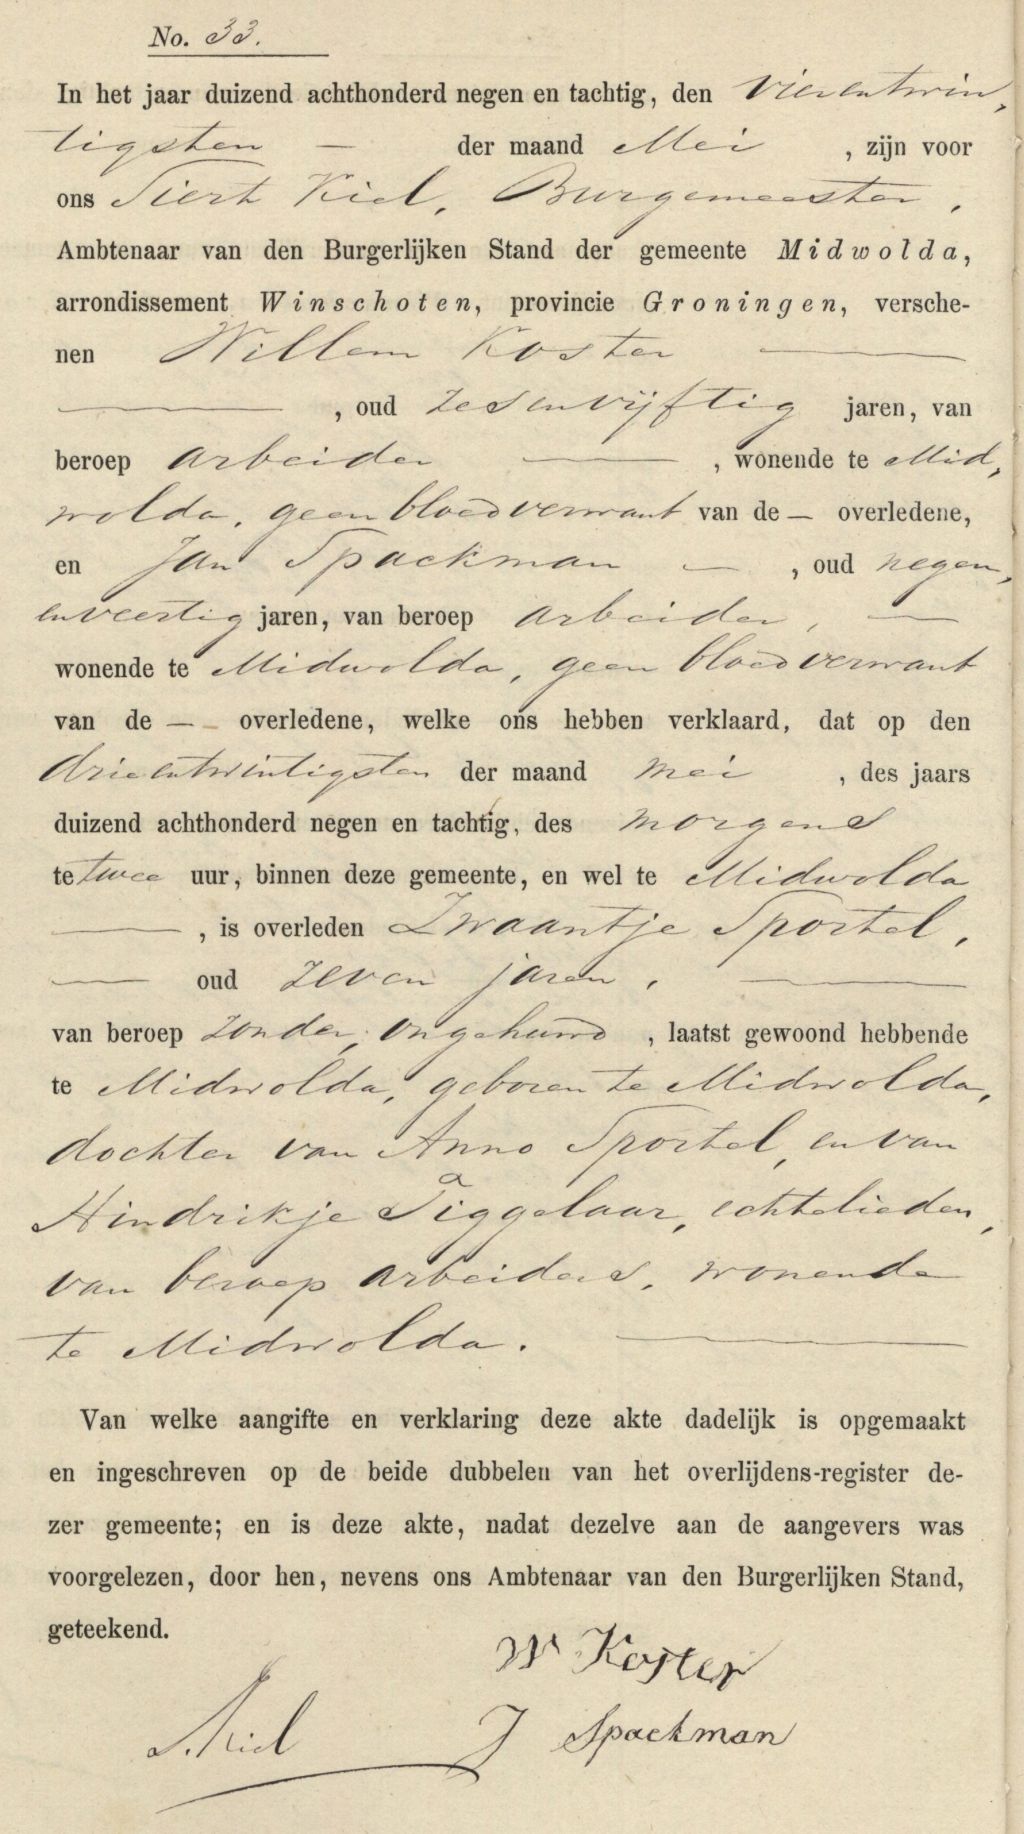 No. 33.
In het jaar duizend achthonderd negen en tachtig, den vierentwin,
tigsten — der maand Mei , zijn voor
ons Siert Kiel, Burgemeester,
Ambtenaar van den Burgerlijken Stand der gemeente Midwolda,
arrondissement Winschoten, provincie Groningen, versche-
nen Willem Koster —
— , oud zesenvijftig jaren, van
beroep arbeider — , wonende te Mid,
wolda, geen bloedverwant van de — overledene,
en Jan Spackman — , oud negen,
enveertig jaren, van beroep arbeider, —
wonende te Midwolda, geen bloedverwant
van de — overledene, welke ons hebben verklaard, dat op den
drieentwintigsten der maand mei , des jaars
duizend achthonderd negen en tachtig, des morgens
te twee uur, binnen deze gemeente, en wel te Midwolda
— , is overleden Zwaantje Sportel,
— oud zeven jaren, —
van beroep zonder, ongehuwd , laatst gewoond hebbende
te Midwolda, geboren te Midwolda,
dochter van Anno Sportel, en van
Hindrikje Tiggelaar, echtelieden,
van beroep arbeiders, wonende
te Midwolda. —
Van welke aangifte en verklaring deze akte dadelijk is opgemaakt
en ingeschreven op de beide dubbelen van het overlijdens-register de-
zer gemeente; en is deze akte, nadat dezelve aan de aangevers was
voorgelezen, door hen, nevens ons Ambtenaar van den Burgerlijken Stand,
geteekend.
W Koster
S. Kiel
J Spackman